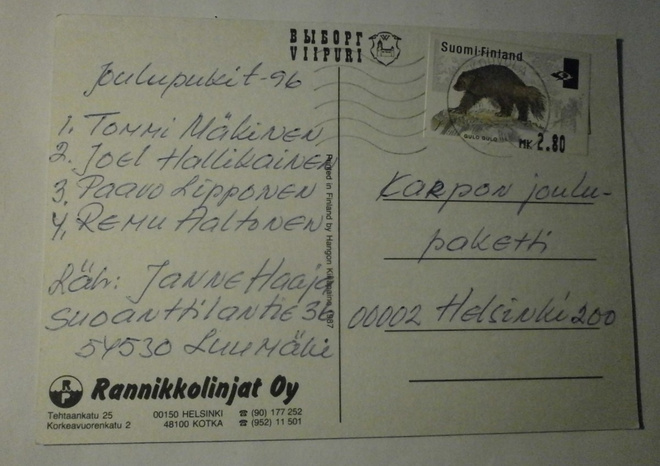 ВЫБОРГ
VIIPURI
Joulupukit-96
1. Tommi Mäkinen
2. Joel Hallikainen
3. Paavo Lipponen
4. Remu Aaltonen
Läh: Janne Haaja
Suoanttilantie 36
54530 Luumäki
Rannikkolinjat Oy
Tehtaankatu 25 00150 HELSINKI ☎ (90) 177 252
Korkeavuorenkatu 2 48100 KOTKA ☎ (952) 11 501
Printed in Finland by Hangon Kirjapaino 1987
Suomi-Finland
GULO GULO
MK 2.80
Karpon joulu-
paketti
00002 Helsinki 200